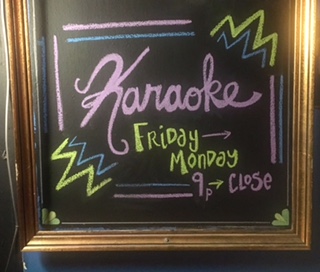 Karaoke
FRIDAY →
MONDAY
9p → CLOSE